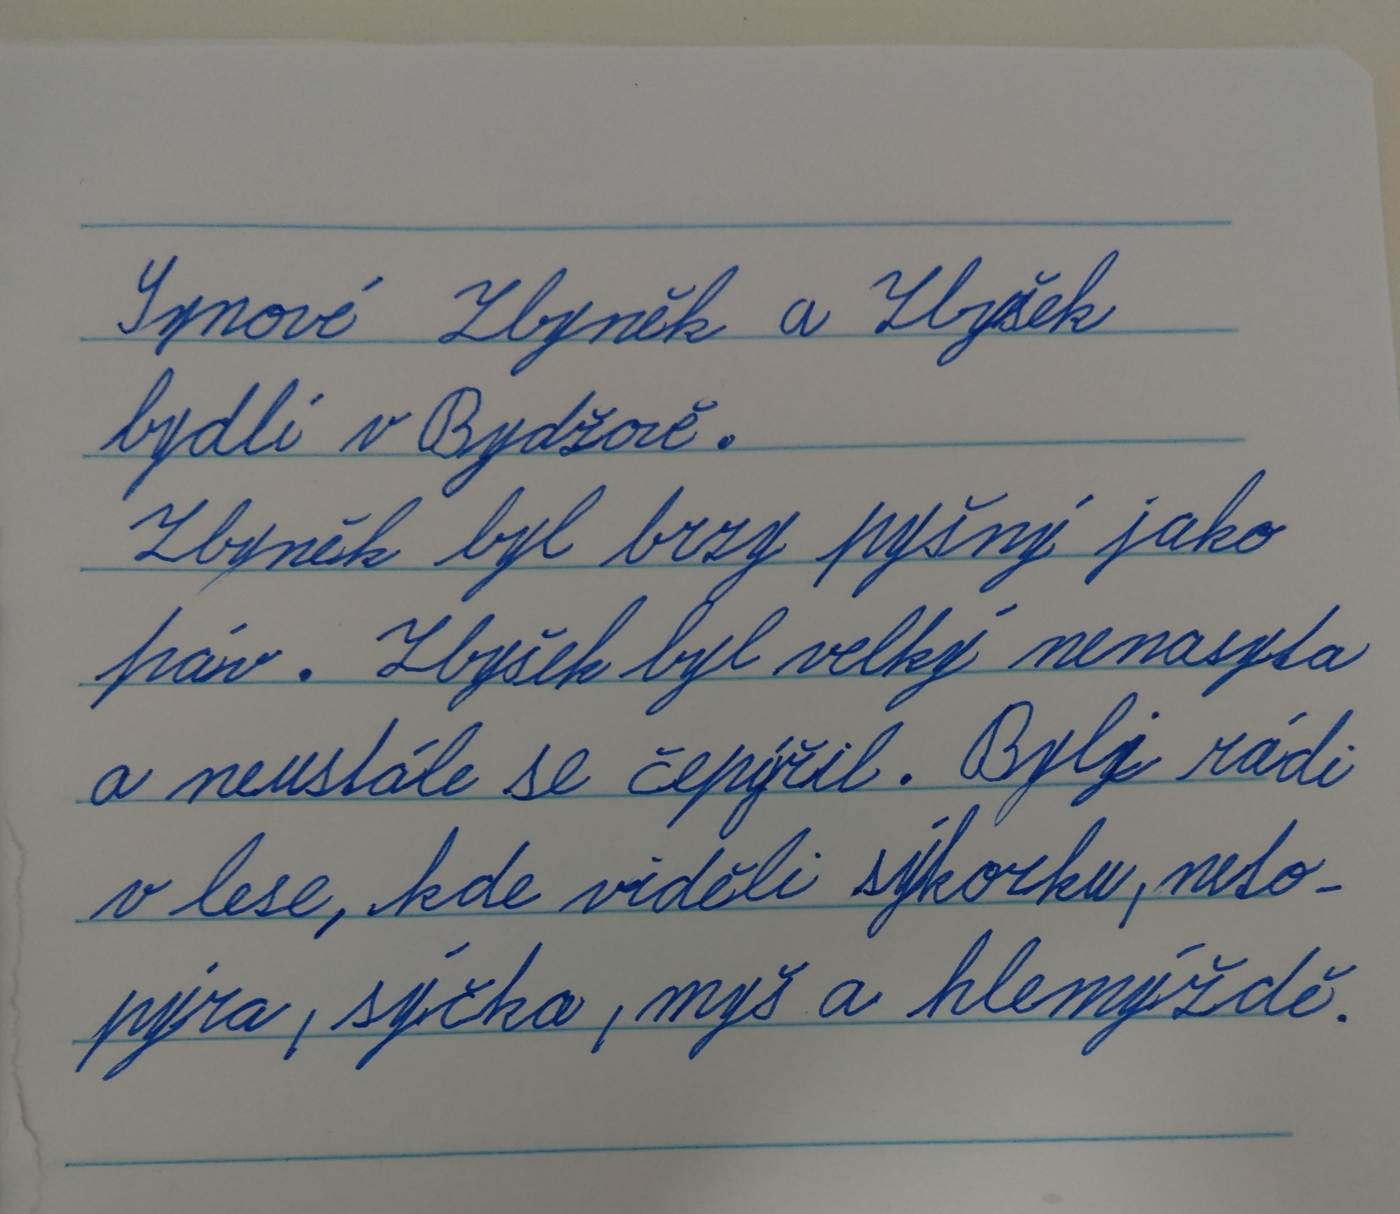 Synové Zbyněk a Zbyšek
bydlí v Bydžově.
Zbyněk byl brzy pyšný jako
páv. Zbyšek byl velký nenasyta
a neustále se čepýřil. Byli rádi
v lese, kde viděli sýkorku, neto-
pýra, sýčka, myš a hlemýždě.